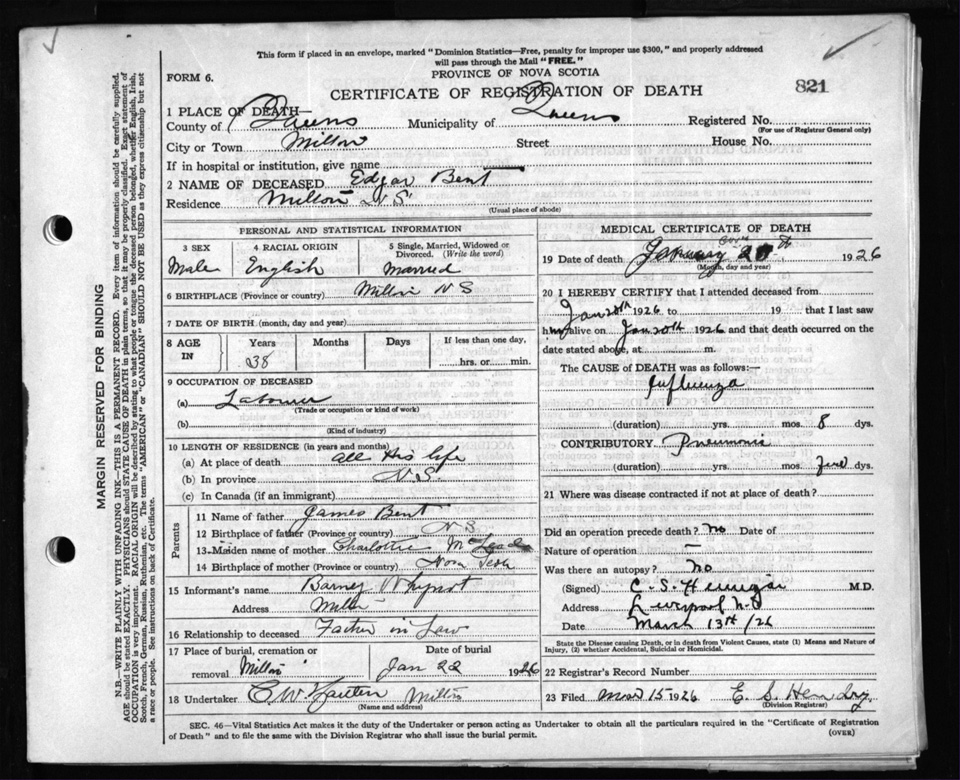 This form if placed in an envelope, marked "Dominion Statistics—Free, penalty for improper use $300," and properly addressed
will pass through the Mail "FREE."
PROVINCE OF NOVA SCOTIA
FORM 6.
CERTIFICATE OF REGISTRATION OF DEATH
821
1 PLACE OF DEATH—
County of Queens Municipality of Queens Registered No.
(For use of Registrar General only)
City or Town Milton Street House No.
If in hospital or institution, give name
2 NAME OF DECEASED Edgar Bent
Residence Milton N S
(Usual place of abode)
PERSONAL AND STATISTICAL INFORMATION
3 SEX 4 RACIAL ORIGIN 5 Single, Married, Widowed or
Divorced. (Write the word)
Male English Married
6 BIRTHPLACE (Province or country) Milton N S
7 DATE OF BIRTH (month, day and year)
8 AGE IN Years Months Days If less than one day,
38 hrs. or min.
9 OCCUPATION OF DECEASED
(a) Labourer
(Trade or occupation or kind of work)
(b)
(Kind of industry)
10 LENGTH OF RESIDENCE (in years and months)
(a) At place of death all His life
(b) In province N.S.
(c) In Canada (if an immigrant)
Parents
11 Name of father James Bent
12 Birthplace of father (Province or country) N S
13 Maiden name of mother Charlotte
14 Birthplace of mother (Province or country) Nova Scotia
15 Informant's name Barney Whynot
Address Milton
16 Relationship to deceased Father in Law
17 Place of burial, cremation or Date of burial
removal Milton Jan 22 1926
18 Undertaker C. W. Milton
(Name and address)
MEDICAL CERTIFICATE OF DEATH
19 Date of death January 20th 1926
(Month, day and year)
20 I HEREBY CERTIFY that I attended deceased from
Jan 20th 1926 to 19 that I last saw
him alive on Jan 20th 1926 and that death occurred on the
date stated above, at m.
The CAUSE of DEATH was as follows:—
Influenza
(duration) yrs. mos. 8 dys.
CONTRIBUTORY Pneumonia
(duration) yrs. mos. dys.
21 Where was disease contracted if not at place of death?
Did an operation precede death? no Date of
Nature of operation —
Was there an autopsy? no
(Signed) C. S. M.D.
Address Liverpool N.S
Date March 13th /26
State the Disease causing Death, or in death from Violent Causes, state (1) Means and Nature of
Injury, (2) whether Accidental, Suicidal or Homicidal.
22 Registrar's Record Number
23 Filed Mar 15 1926 E. S. Hendry
(Division Registrar)
SEC. 46—Vital Statistics Act makes it the duty of the Undertaker or person acting as Undertaker to obtain all the particulars required in the "Certificate of Registration
of Death" and to file the same with the Division Registrar who shall issue the burial permit. (OVER)
MARGIN RESERVED FOR BINDING
N.B.—WRITE PLAINLY WITH UNFADING INK—THIS IS A PERMANENT RECORD. Every item of information should be carefully supplied.
AGE should be stated EXACTLY. PHYSICIANS should STATE CAUSE OF DEATH in plain terms, so that it may be properly classified. Exact statement of
OCCUPATION is very important. RACIAL ORIGIN will be described by stating to what people or tongue the deceased person belonged, whether English, Irish,
Scotch, French, German, Russian, Ruthenian, etc. The terms "AMERICAN" or "CANADIAN" SHOULD NOT BE USED as they express citizenship but not
a race or people. See instructions on back of Certificate.